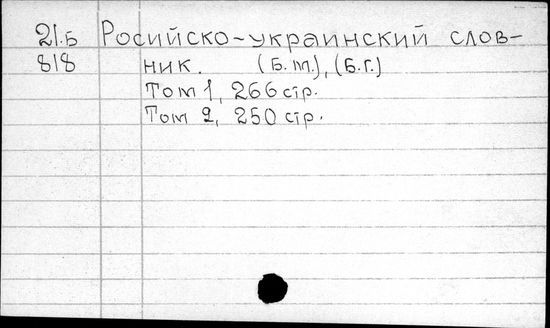 21.Б Росийско-украинский слов-
818 ник. (Б.т.), (Б.г.)
Том 1, 266 стр.
Том 2, 250 стр.